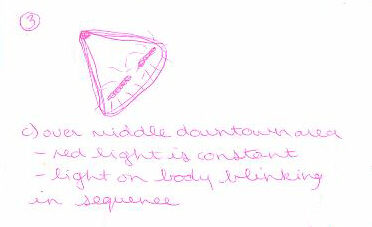 3
c) over middle downtown area
- red light is constant
- light on body blinking
in sequence